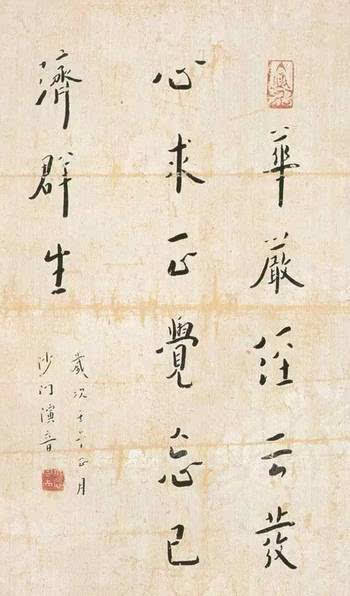 華嚴經云發
心求正覺忘己
濟群生
歲次壬子正月
沙門演音